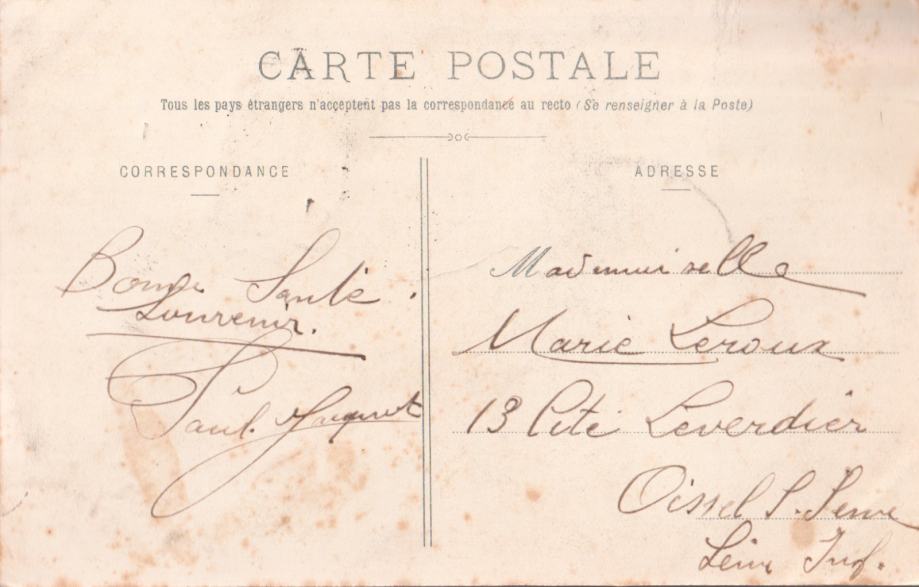 CARTE POSTALE
Tous les pays étrangers n'acceptent pas la correspondance au recto (Se renseigner à la Poste)
CORRESPONDANCE
Bonne Santé.
Souvenir.
Paul Jacquot
ADRESSE
Mademoiselle
Marie Leroux
13 Cité Leverdier
Oissel S. Seine
Seine Inf.